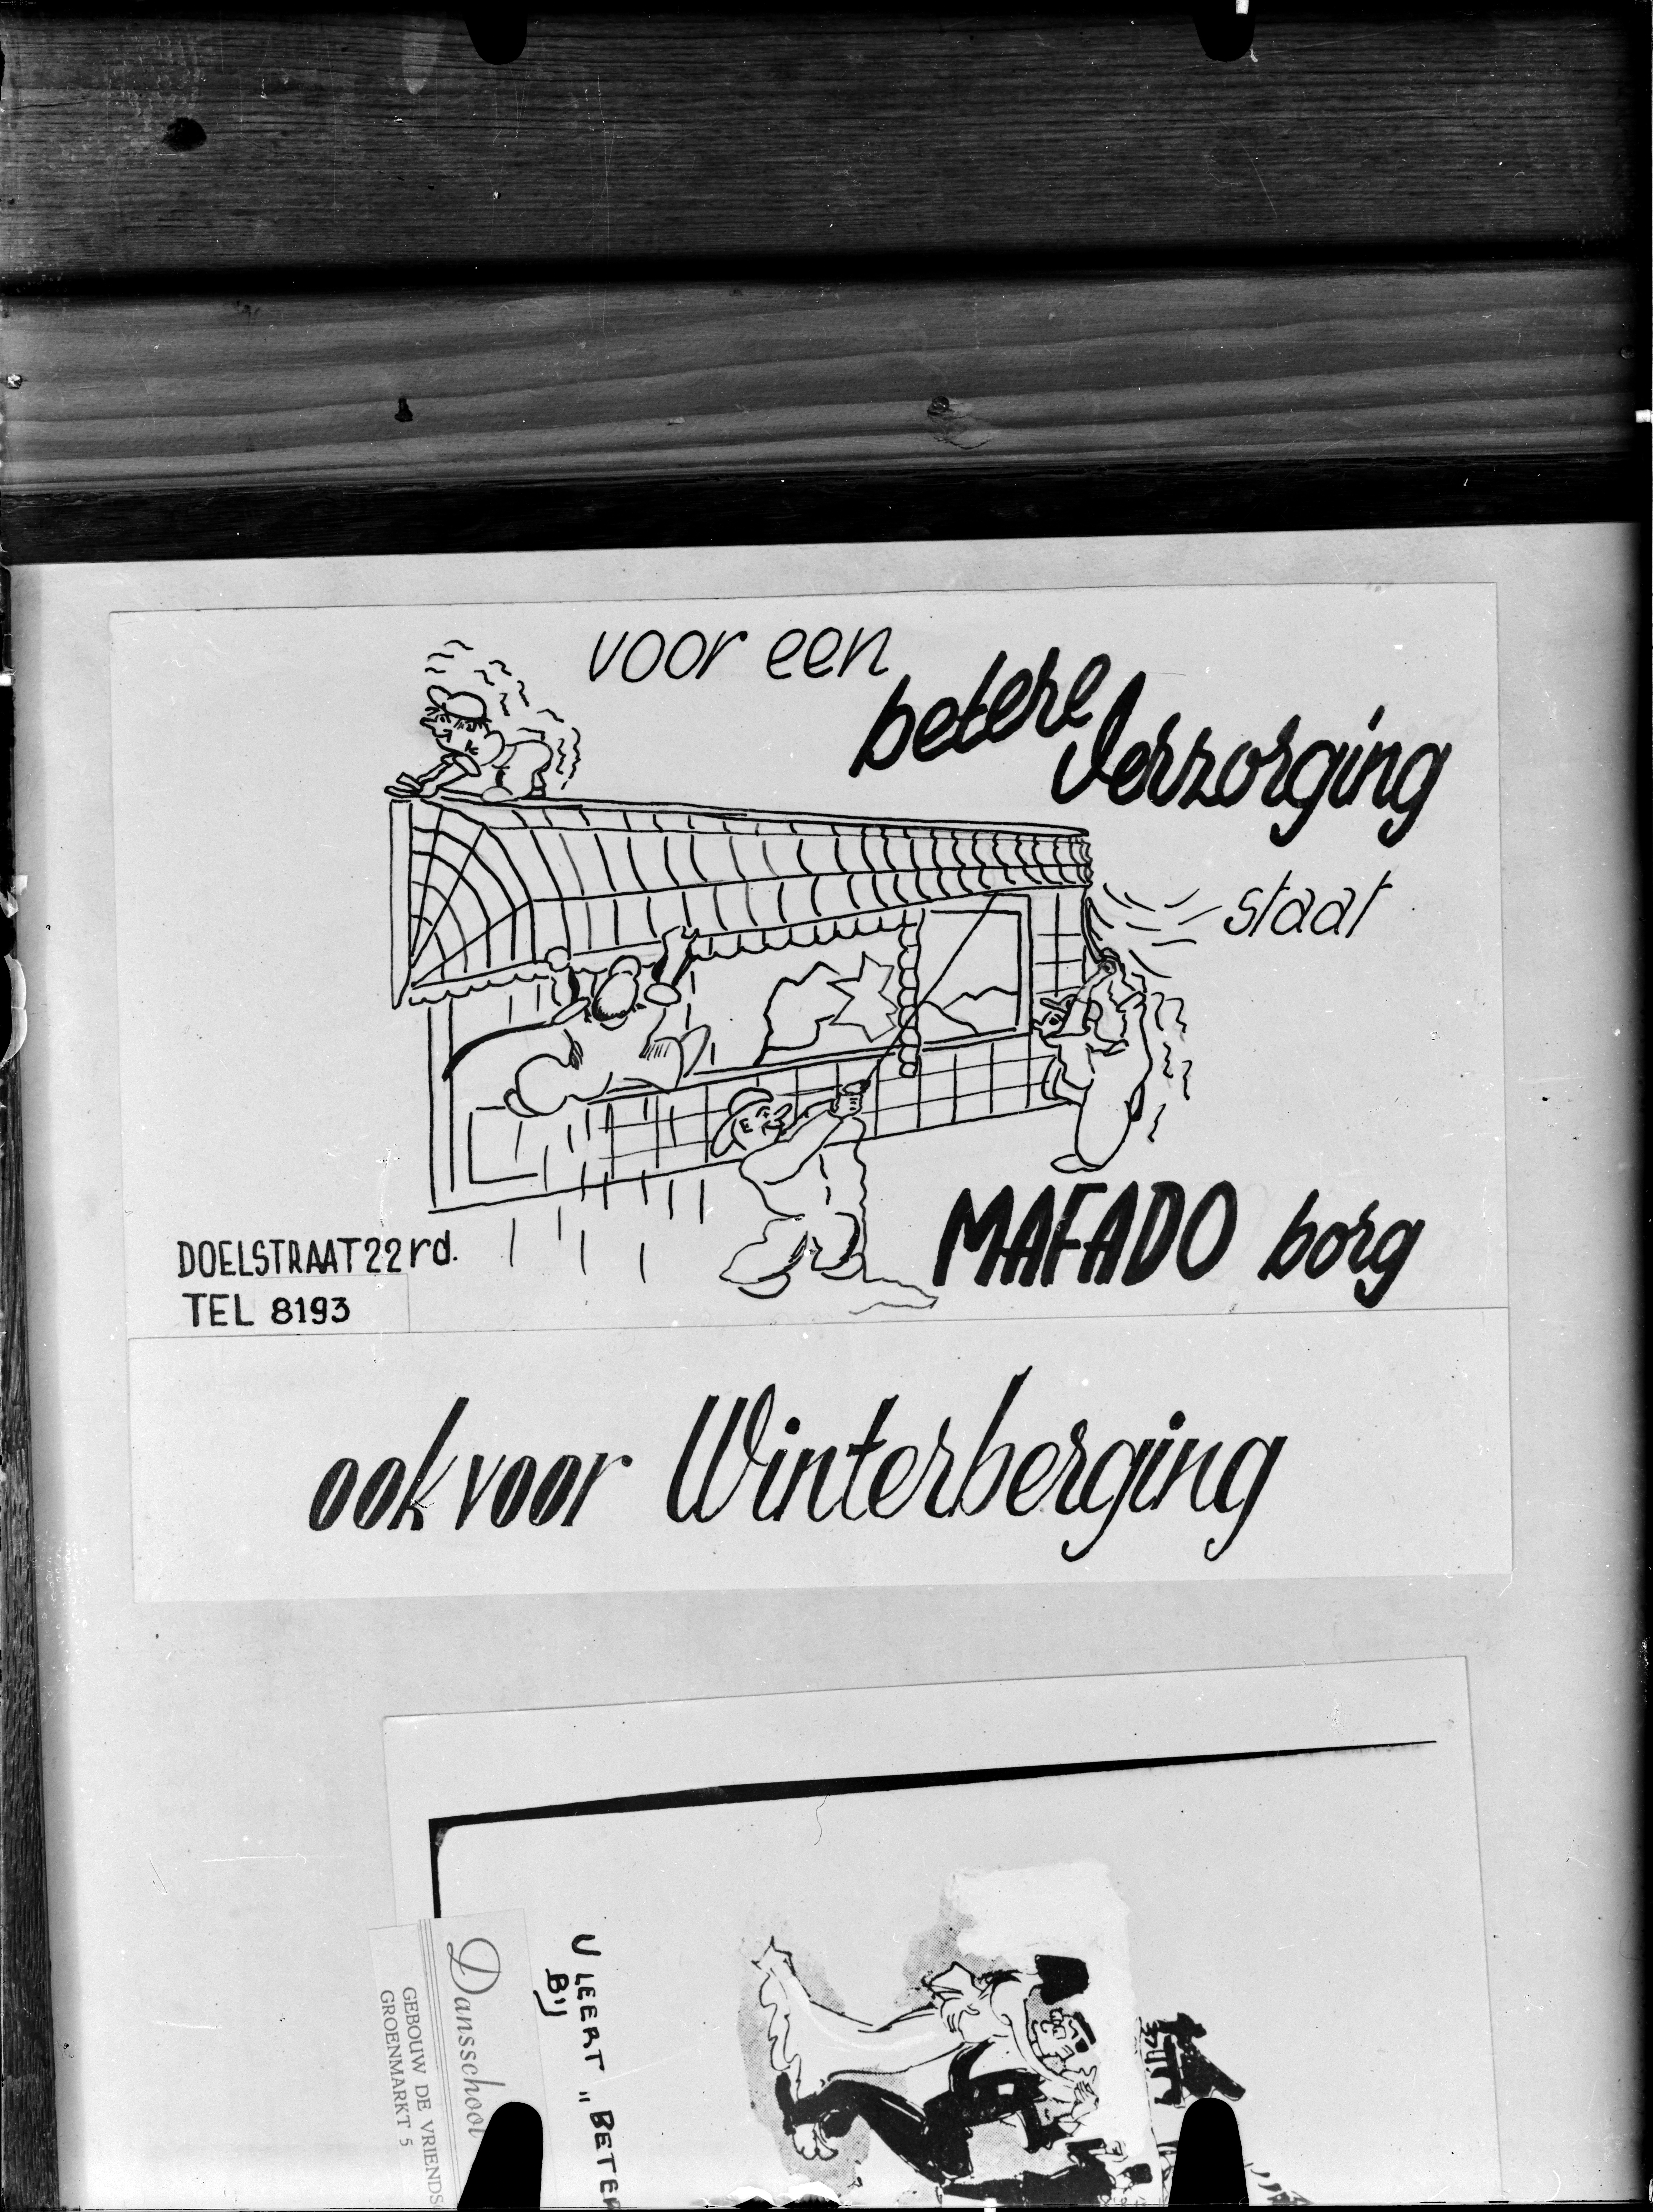 voor een
betere
Verzorging
staat
MAFADO borg
DOELSTRAAT 22 rd.
TEL 8193
ook voor Winterberging
U LEERT „BETER
BIJ
Dansschool
GEBOUW DE VRIENDS
GROENMARKT 5